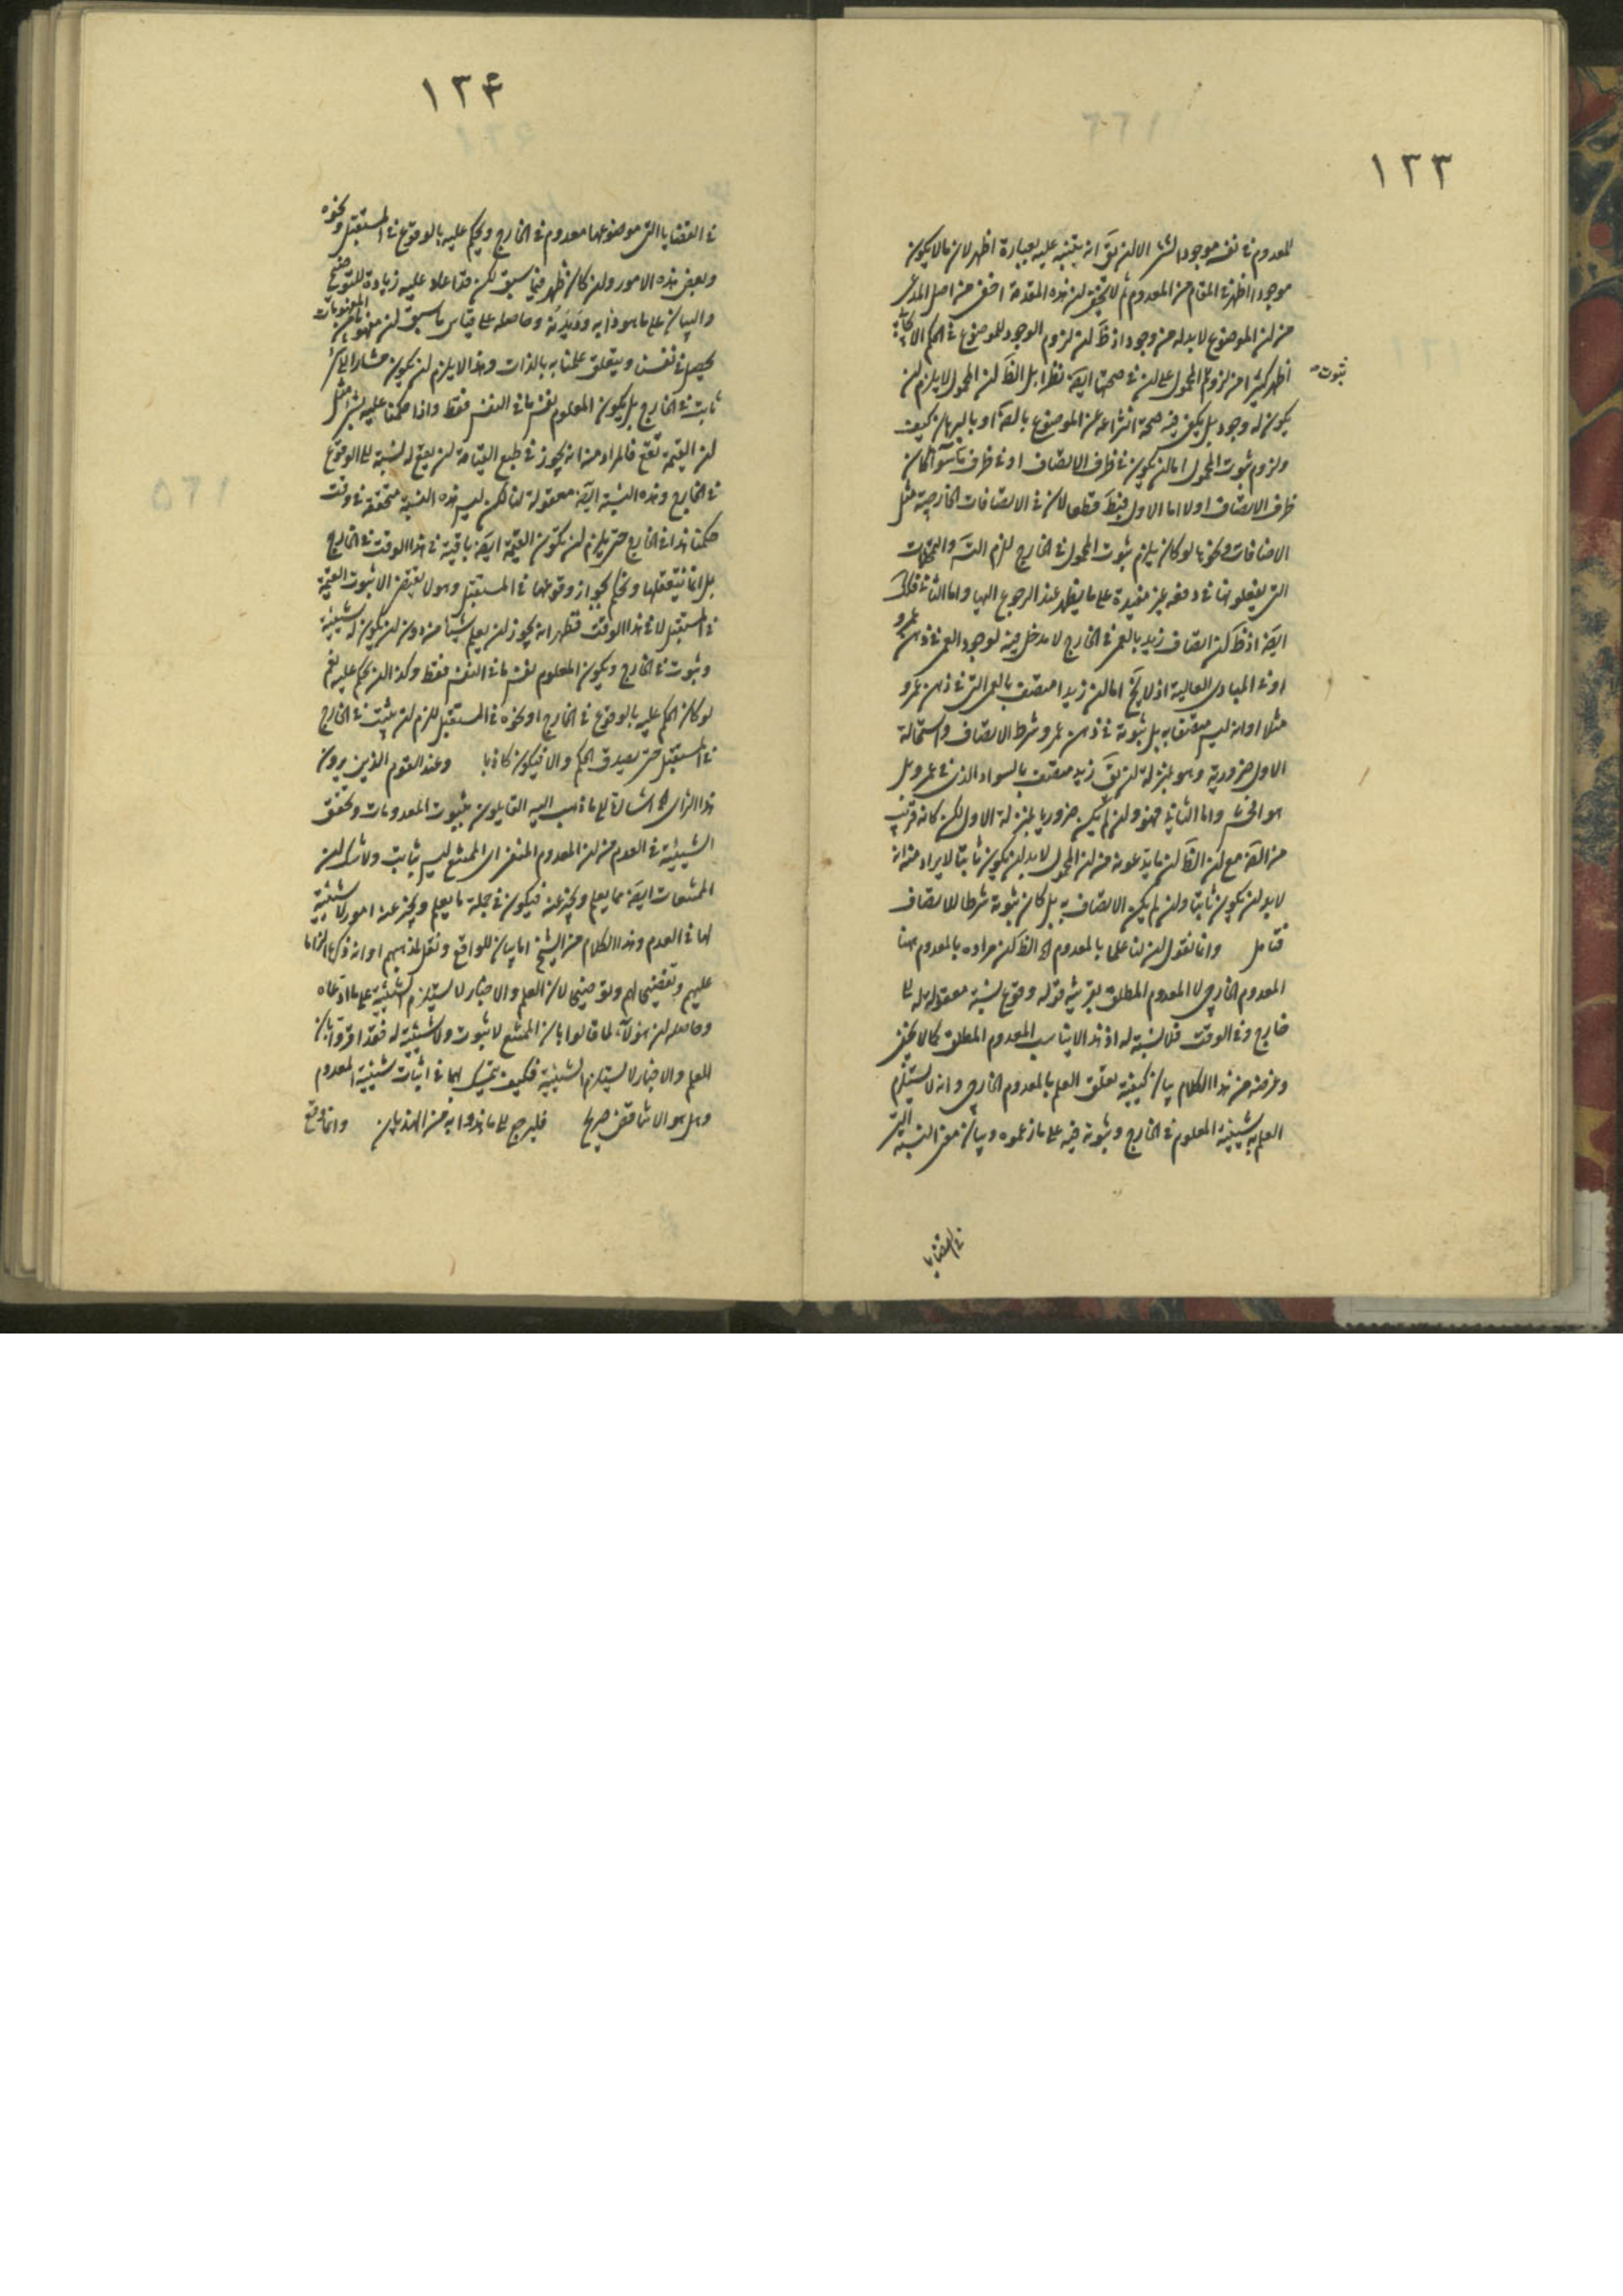 ١٢٣
للمعدوم في نفسه موجودا لشئ الا ان يق انه يتنبه عليه بعبارة اظهر لان ما لا يكون
موجودا اظهر في المقام من المعدوم ثم لا يخفى ان هذه المقدمة اخفى من اصل المدعى
من ان الموضوع لا بد له من وجود اذ ظ ان لزوم الوجود للموضوع في الحكم الايجابي
اظهر كثيرا من لزوم المحمول على ان في صحتها ايض نظرا بل الظ ان المحمول لا يلزم ان
ثبوت
يكون له وجود بل يكفي فيه صحة انتزاعه عن الموضوع بالض او بالبرهان كيف
ولزوم ثبوت المحمول اما ان يكون في ظرف الاتصاف او في ظرف ما سواء كان
ظرف الاتصاف اولا اما الاول فبط قطعا لان في الاتصافات الخارجية مثل
الاضافات ونحوها لو كان يلزم ثبوت المحمول في الخارج للزم التس والتمحلات
التي يفعلونها في دفعه غير مفيدة على ما يظهر عند الرجوع اليها واما الثاني فكك
ايض اذ ظ ان اتصاف زيد بالعمى في الخارج لا مدخل فيه لوجود العمى في ذهن عمرو
او في المبادي العالية اذ لا يخ اما ان زيدا متصف بالعمى التي في ذهن عمرو
مثلا او انه ليس متصفا به بل ثبوته في ذهن عمرو شرط الاتصاف واستحالة
الاول ضرورية وهو بمنزلة ان يق زيد متصف بالسواد الذي في عمرو بل
هو افحش واما الثاني فهو وان لم يكن ضروريا بمنزلة الاول لكن كانه قريب
من الض مع ان الظ ان ما يدعونه من ان المحمول لا بد ان يكون ثابتا لا يراد منه انه
لا بد ان يكون ثابتا وان لم يكن الاتصاف به بل كان ثبوته شرطا للاتصاف
فتامل وانا نقول ان لنا علما بالمعدوم اه الظ ان مراده بالمعدوم ههنا
المعدوم الخارجي لا المعدوم المطلق بقرينة قوله وقوع نسبة معقولة له في
خارج وفي الوقت فلا نسبة له اذ هذا لا يناسب المعدوم المطلق كما لا يخفى
وغرضه من هذا الكلام بيان كيفية تعلق العلم بالمعدوم الخارجي وانه لا يستلزم
العلم به شيئية المعلوم في الخارج وثبوته فيه على ما زعموه وبيان معنى النسبة التي
في القضايا
١٢۴
في القضايا التي موضوعها معدوم في الخارج ويحكم عليه بالوقوع في المستقبل ونحوه
وبعض هذه الامور وان كان ظهر فيما سبق لكن قد اعاد عليه زيادة للتوضيح
والبيان على ما هو دابه وديدنه وحاصله على قياس ما سبق ان مفهوما من المفهومات
يحصل في نفسنا ويتعلق علمنا به بالذات وهذا لا يلزم ان يكون مشارا الى شئ
ثابت في الخارج بل يكون المعلوم نفس ما في النفس فقط واذا حكمنا عليه بشئ مثل
ان القيمة تقع فالمراد منه انه يجوز في طبع القيامة ان يقع له نسبة الى الوقوع
في الخارج وهذه النسبة ايض معقولة لنا لكن ليس هذه النسبة متحققة في وقت
حكمنا هذا في الخارج حتى يلزم ان تكون القيمة ايض باقية في هذا الوقت في الخارج
بل انا نتعقلها ونحكم بجواز وقوعها في المستقبل وهو لا يقتضى الا ثبوت القيمة
في المستقبل لا في هذا الوقت فظهر انه يجوز ان يعلم شيئا من دون ان يكون له شيئية
وثبوت في الخارج ويكون المعلوم نفس ما في النفس فقط وكذا ان يحكم عليه نعم
لو كان الحكم عليه بالوقوع في الخارج او نحوه في المستقبل للزم ان يثبت في الخارج
في المستقبل حتى يصدق الحكم والا فيكون كاذبا وعند القوم الذين يرون
هذا الراي اه اشارة الى ما ذهب اليه القايلون بثبوت المعدومات وتحقق
الشيئية في العدم من ان المعدوم المنفى اى الممتنع ليس بثابت ولا شك ان
الممتنعات ايض مما يعلم ويخبر عنه فيكون في جملة ما يعلم ويخبر عنه امور لا شيئية
لها في العدم وهذا الكلام من الشيخ اما بيان للواقع ونقل لمذهبهم او انه ذكره الزاما
عليهم وتفضيحا لهم وتوضيحا لان العلم والاخبار لا يستلزم الشيئية على ما ادعاه
وحاصله ان هؤلاء لما قالوا بان الممتنع لا ثبوت ولا شيئية له فقد اقروا بان
العلم والاخبار لا يستلزم الشيئية فكيف يتمسك بهما في اثبات شيئية المعدوم
وهل هو الا تناقض صريح فليرجع الى ما هذوا به من الهذيان وانما وقع